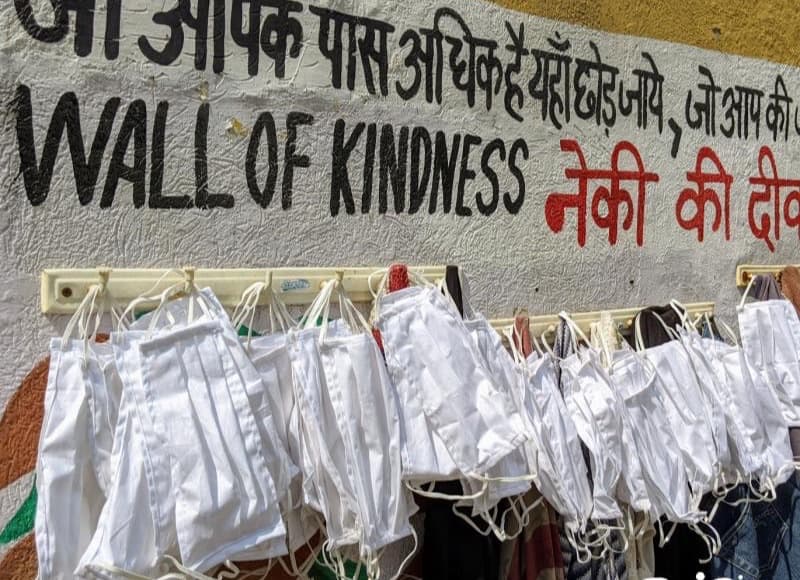 जो आपके पास अधिक है यहाँ छोड़ जाये, जो आप की
WALL OF KINDNESS नेकी की